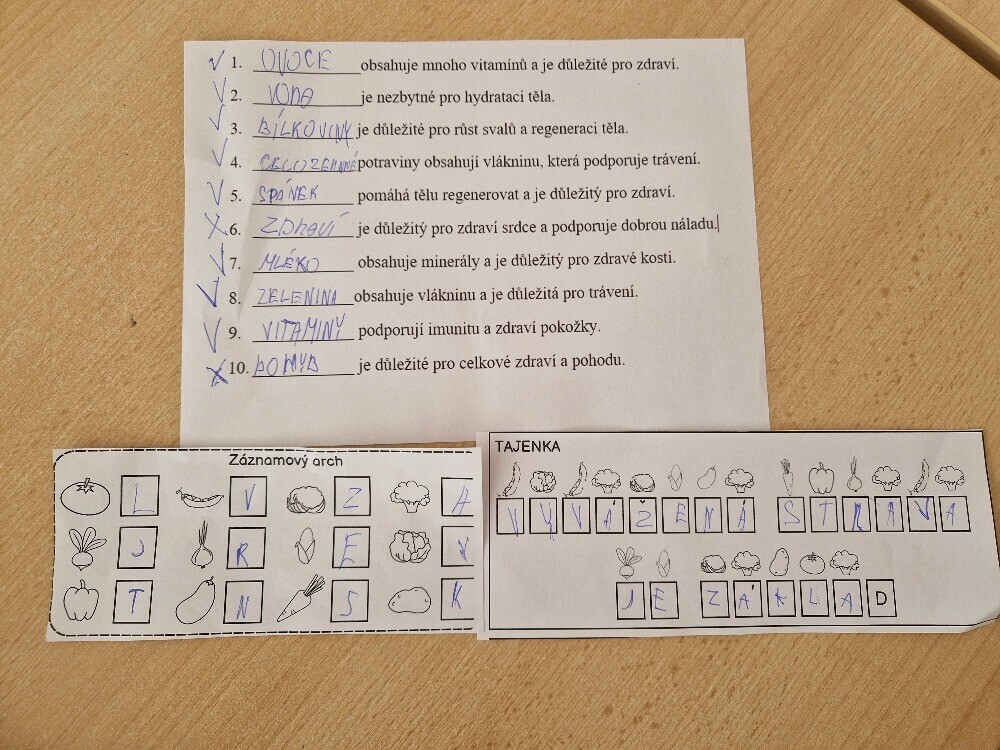 ✓ 1. OVOCE obsahuje mnoho vitamínů a je důležité pro zdraví.
✓ 2. VODA je nezbytné pro hydrataci těla.
✓ 3. BÍLKOVINY je důležité pro růst svalů a regeneraci těla.
✓ 4. CELOZERNNÉ potraviny obsahují vlákninu, která podporuje trávení.
✓ 5. SPÁNEK pomáhá tělu regenerovat a je důležitý pro zdraví.
X 6. ZDRAVÍ je důležitý pro zdraví srdce a podporuje dobrou náladu.
✓ 7. MLÉKO obsahuje minerály a je důležitý pro zdravé kosti.
✓ 8. ZELENINA obsahuje vlákninu a je důležitá pro trávení.
✓ 9. VITAMINY podporují imunitu a zdraví pokožky.
X 10. je důležité pro celkové zdraví a pohodu.
Záznamový arch
L V Z A
J R E Y
T N S K
TAJENKA
VYVÁŽENÁ STRAVA
JE ZÁKLAD